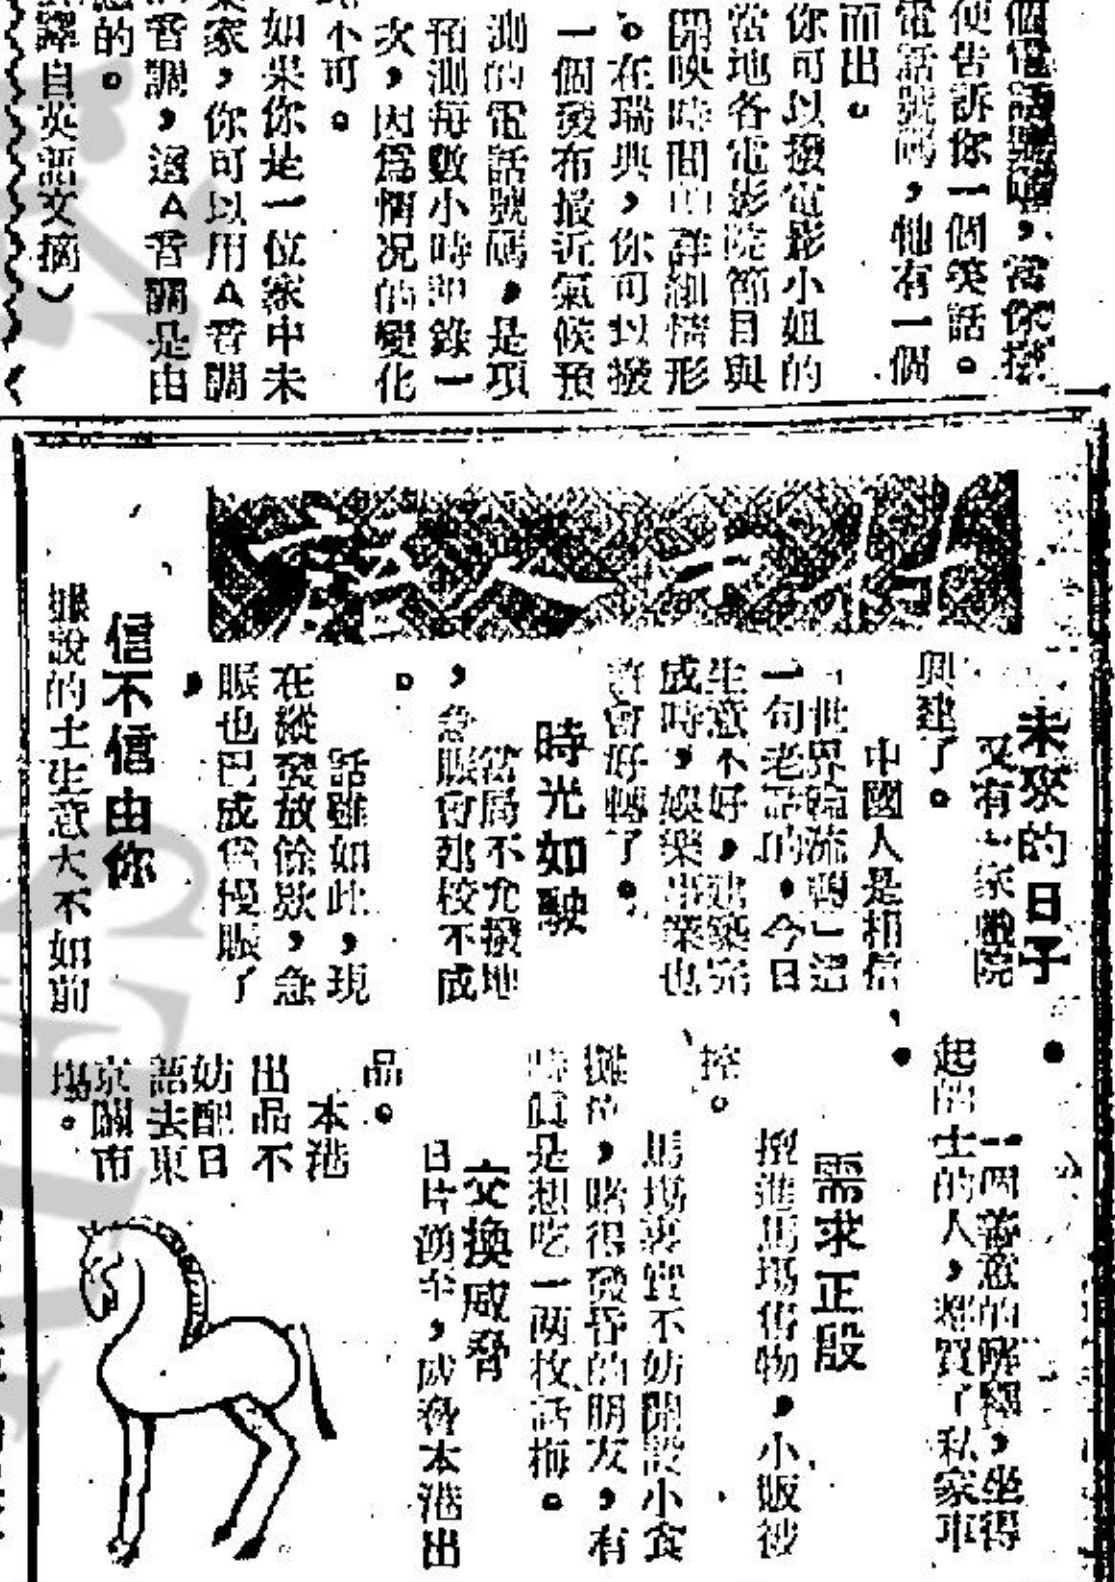 個電話號碼,當你撥
便告訴你一個笑話。
電話號碼,他有一個
而出。
你可以撥電影小姐的
當地各電影院節目與
開映時間的詳細情形
。在瑞典,你可以撥
一個發布最近氣候預
測的電話號碼,是項
預測每數小時即錄一
次,因爲情况的變化
不可。
如果你是一位家中未
家,你可以用A音調
音調,這A音調是由
的。
譯自英語文摘)
未來的日子
又有一家戲院
興建了。
中國人是相信
「世界輪流轉」這
一句老話的,今日
生意不好,建築完
成時,娛樂事業也
許會好轉了。
時光如駛
當局不允撥地
,急賬會建校不成
。
話雖如此,現
在縱發放餘款,急
賬也已成爲慢賬了
,
信不信由你
據說的士生意大不如前
。
一個善意的解釋,坐得
起的士的人,都買了私家車
,
需求正殷
擅進馬場售物,小販被
控。
馬場裏實不妨開設小食
攤位,賭得發昏的朋友,有
時眞是想吃一兩枚話梅。
交換威脅
日片湧至,威脅本港出
品。
本港
出品不
妨配日
語去東
京闢市
場。